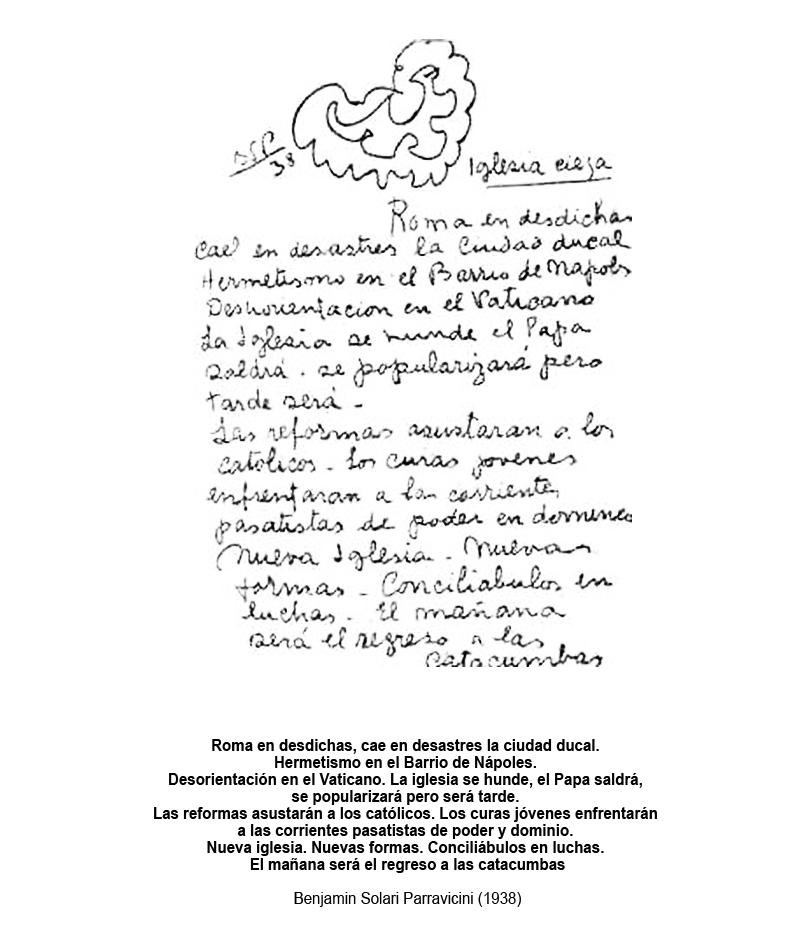 BSP
38
Iglesia ciega
Roma en desdichas
Cae en desastres la Ciudad ducal
Hermetismo en el Barrio de Napoles
Deshorientacion en el Vaticano
La Iglesia se hunde el Papa
saldrá. se popularizará pero
tarde será -
Las reformas asustaran a los
católicos - Los curas jovenes
enfrentaran a la corriente
pasatistas de poder en domineo
Nueva Iglesia - Nuevas
formas - Conciliabulos en
luchas - El mañana
será el regreso a las
catacumbas
Roma en desdichas, cae en desastres la ciudad ducal.
Hermetismo en el Barrio de Nápoles.
Desorientación en el Vaticano. La iglesia se hunde, el Papa saldrá,
se popularizará pero será tarde.
Las reformas asustarán a los católicos. Los curas jóvenes enfrentarán
a las corrientes pasatistas de poder y dominio.
Nueva iglesia. Nuevas formas. Conciliábulos en luchas.
El mañana será el regreso a las catacumbas
Benjamin Solari Parravicini (1938)